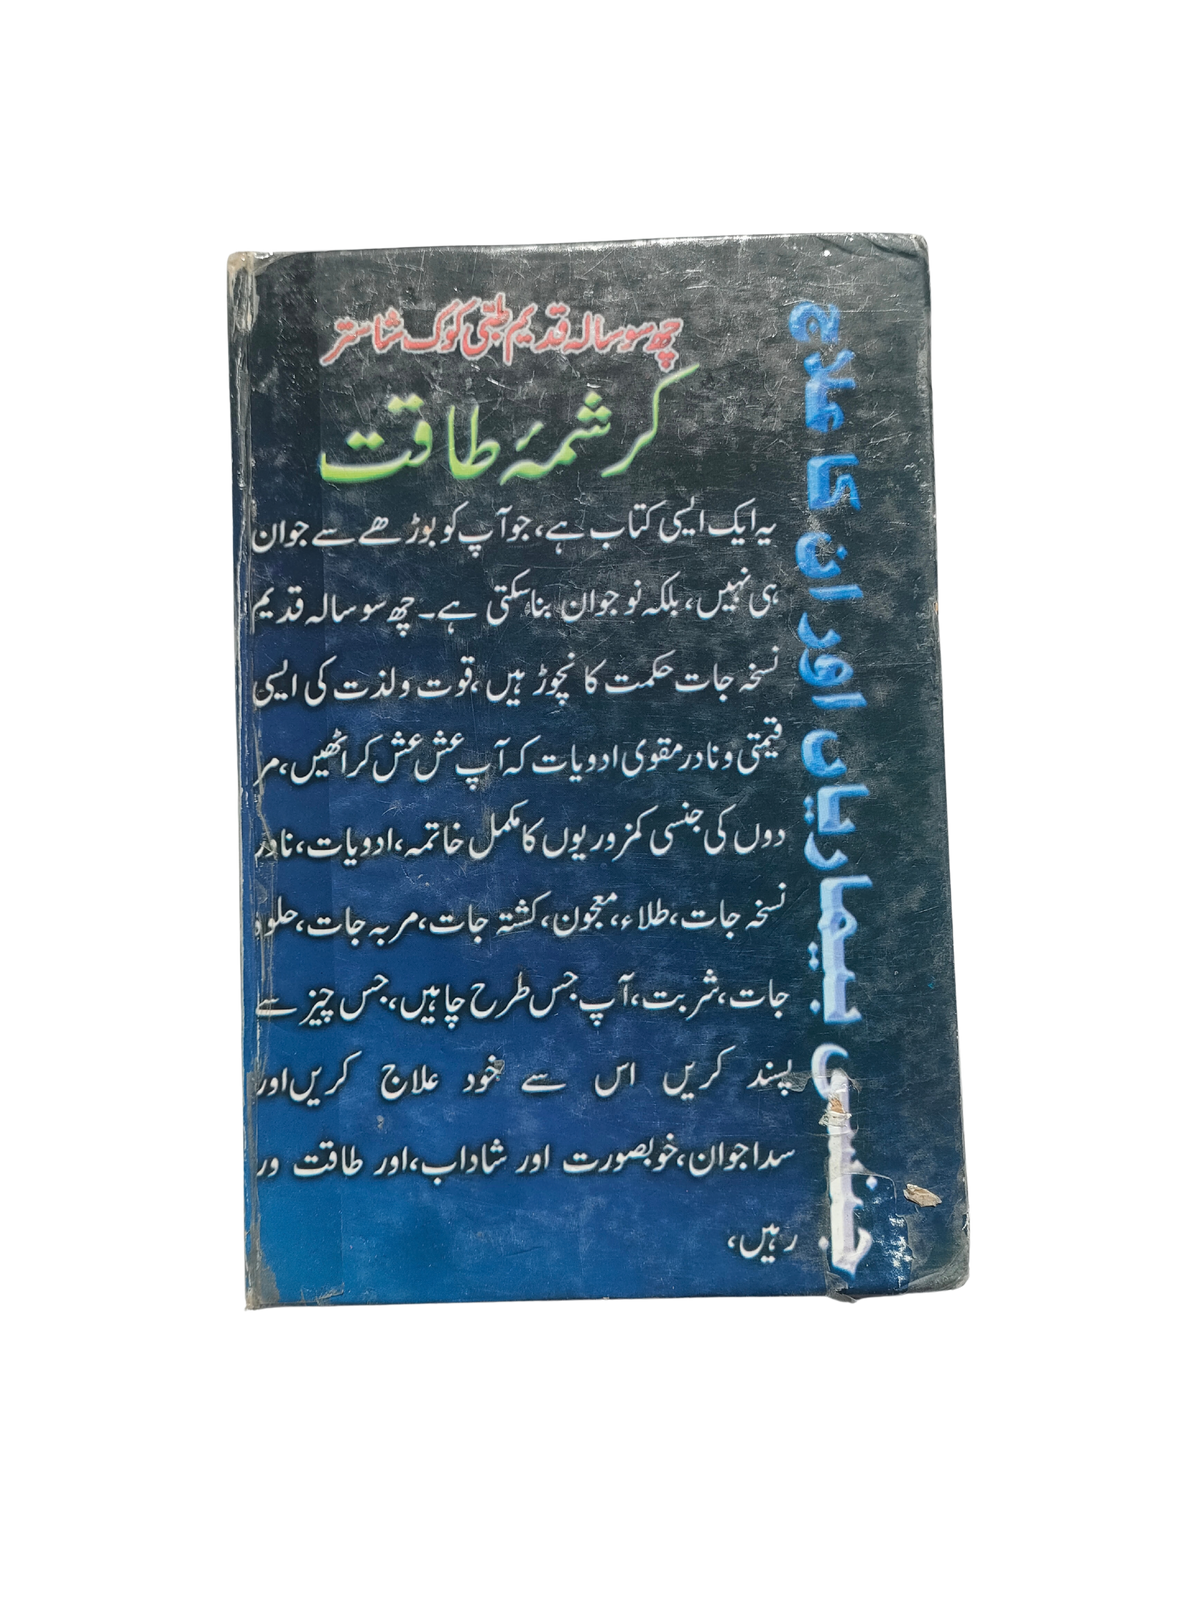 چھ سو سالہ قدیم طبّی کوک شاستر
کرشمۂ طاقت
یہ ایک ایسی کتاب ہے، جو آپ کو بوڑھے سے جوان
ہی نہیں، بلکہ نوجوان بنا سکتی ہے۔ چھ سو سالہ قدیم
نسخہ جات حکمت کا نچوڑ ہیں، قوت و لذت کی ایسی
قیمتی و نادر مقوی ادویات کہ آپ عش عش کر اٹھیں، مر
دوں کی جنسی کمزوریوں کا مکمل خاتمہ، ادویات، نادر
نسخہ جات، طلاء، معجون، کشتہ جات، مربہ جات، حلوہ
جات، شربت، آپ جس طرح چاہیں، جس چیز سے
پسند کریں اس سے خود علاج کریں اور
سدا جوان، خوبصورت اور شاداب، اور طاقت ور
رہیں،
جنسی بیماریاں اور ان کا علاج